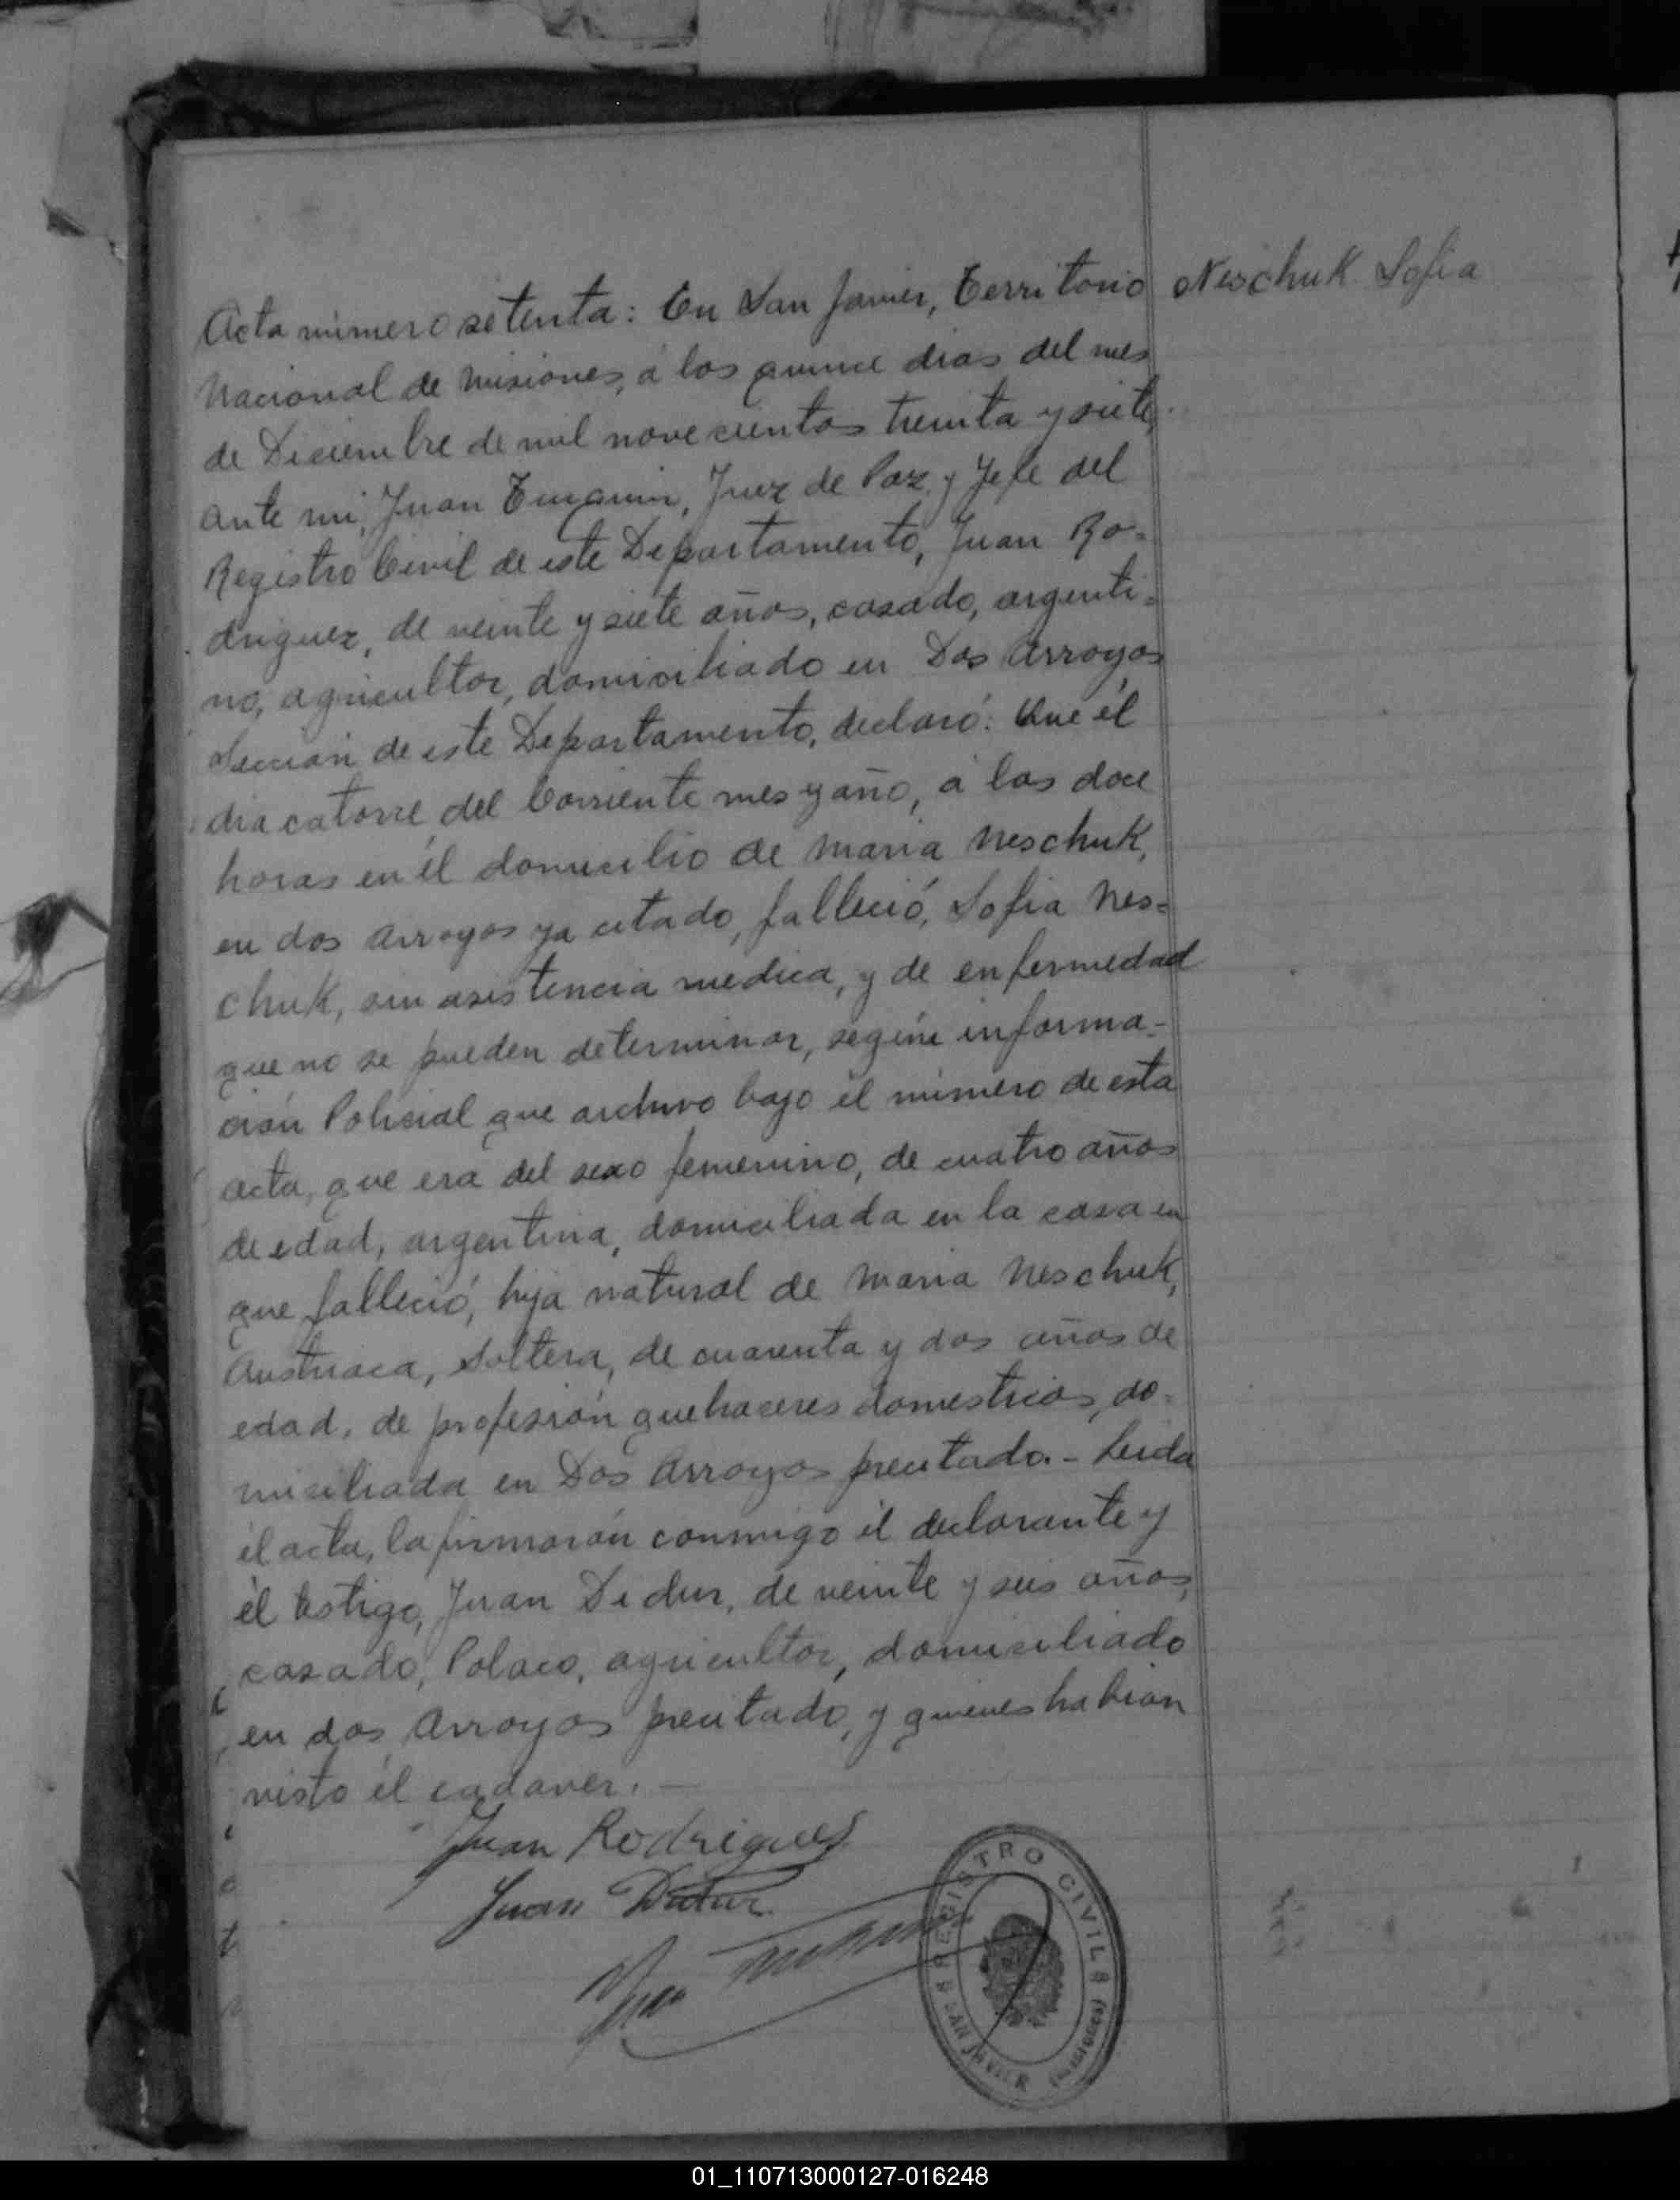 Neschuk Sofia
Acta número setenta: En San Javier, Territorio
Nacional de Misiones, á los quince dias del mes
de Diciembre de mil novecientos treinta y siete,
ante mi, Juan, Juez de Paz y Jefe del
Registro Civil de este Departamento, Juan Ro=
driguez, de veinte y siete años, casado, argenti=
no, agricultor, domiciliado en Dos Arroyos
Sección de este Departamento, declaró: Que él
dia catorce del Corriente mes y año, á las doce
horas en él domicilio de Maria Neschuk,
en dos Arroyos ya citado, falleció, Sofia Nes=
chuk, sin asistencia medica, y de enfermedad
que no se pueden determinar, según informa-
ción Policial que archivo bajo él número de esta
acta, que era del sexo femenino, de cuatro años
de edad, argentina, domiciliada en la casa en
que falleció, hija natural de Maria Neschuk,
Austriaca, Soltera, de cuarenta y dos años de
edad, de profesión quehaceres domesticos, do-
miciliada en Dos Arroyos precitado.- Leida
él acta, la firmarón conmigo él declarante y
él testigo, Juan Didur, de veinte y seis años,
casado, Polaco, agricultor, domiciliado
en dos Arroyos precitado, y quienes habian
visto él cadaver.-
Juan Rodrigues
Juan Didur
REGISTRO CIVIL
SAN JAVIER (MISIONES)
01_110713000127-016248